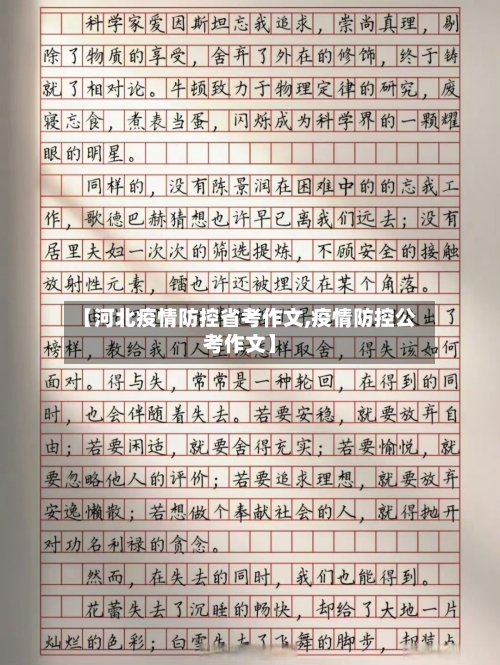 科学家爱因斯坦忘我追求，崇尚真理，剔
除了物质的享受，舍弃了外在的修饰，终于铸
就了相对论。牛顿致力于物理定律的研究，废
寝忘食，煮表当蛋，闪烁成为科学界的一颗耀
眼的明星。
同样的，没有陈景润在困难中的的忘我工
作，歌德巴赫猜想也许早已离我们远去；没有
居里夫妇一次次的筛选提炼，不顾安全的接触
放射性元素，镭也许还被埋没在某个角落。
出了
【河北疫情防控省考作文,疫情防控公
考作文】
榜样，教给我们人样取舍，得失该如何
面对。得与失，常常是一种轮回，在得到的同
时，也会伴随着失去。若要安稳，就要放弃自
由；若要闲适，就要舍得充实；若要愉悦，就
要忽略他人的评价；若要追求理想，就要放弃
安逸懒散；若想做个奉献社会的人，就得抛开
对功名利禄的贪念。
然而，在失去的同时，我们也能得到。
花蕾失去了沉睡的畅快，却给了大地一片
灿烂的色彩；白雪失去了飞舞的脚步，却装点